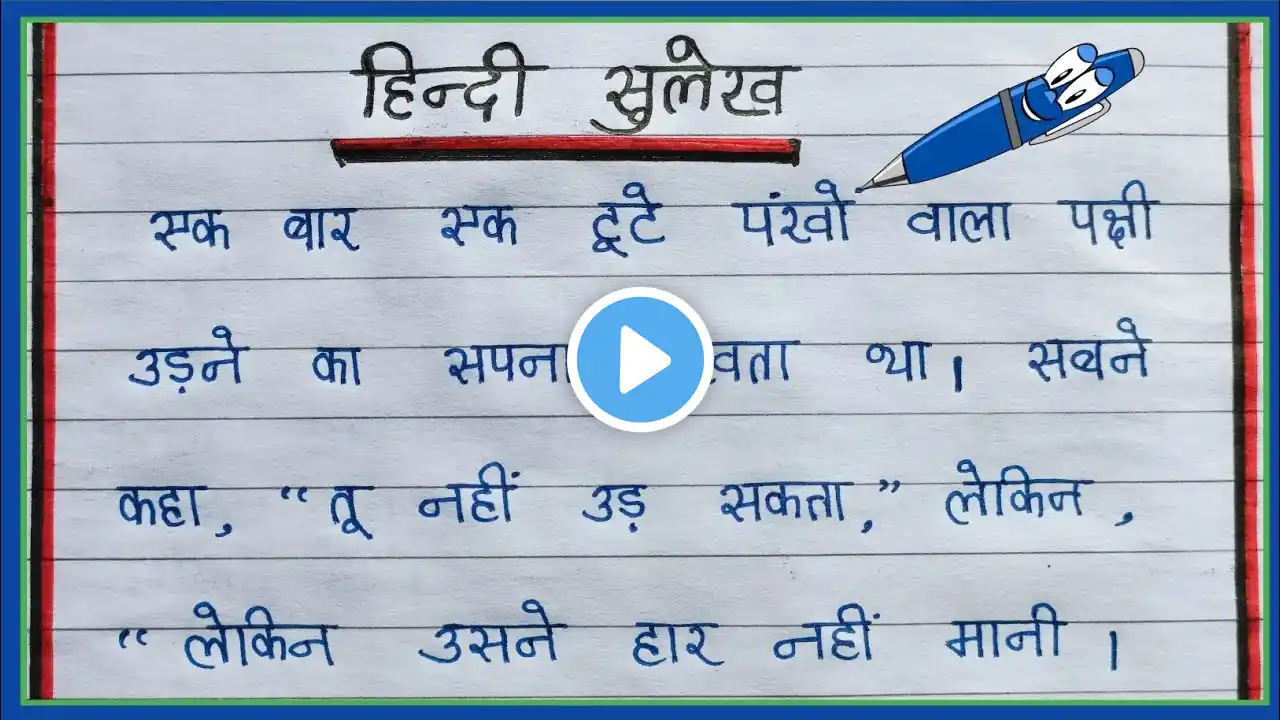 हिन्दी सुलेख
एक बार एक टूटे पंखो वाला पक्षी
उड़ने का सपना था। सबने
कहा, “तू नहीं उड़ सकता,” लेकिन,
“लेकिन उसने हार नहीं मानी।